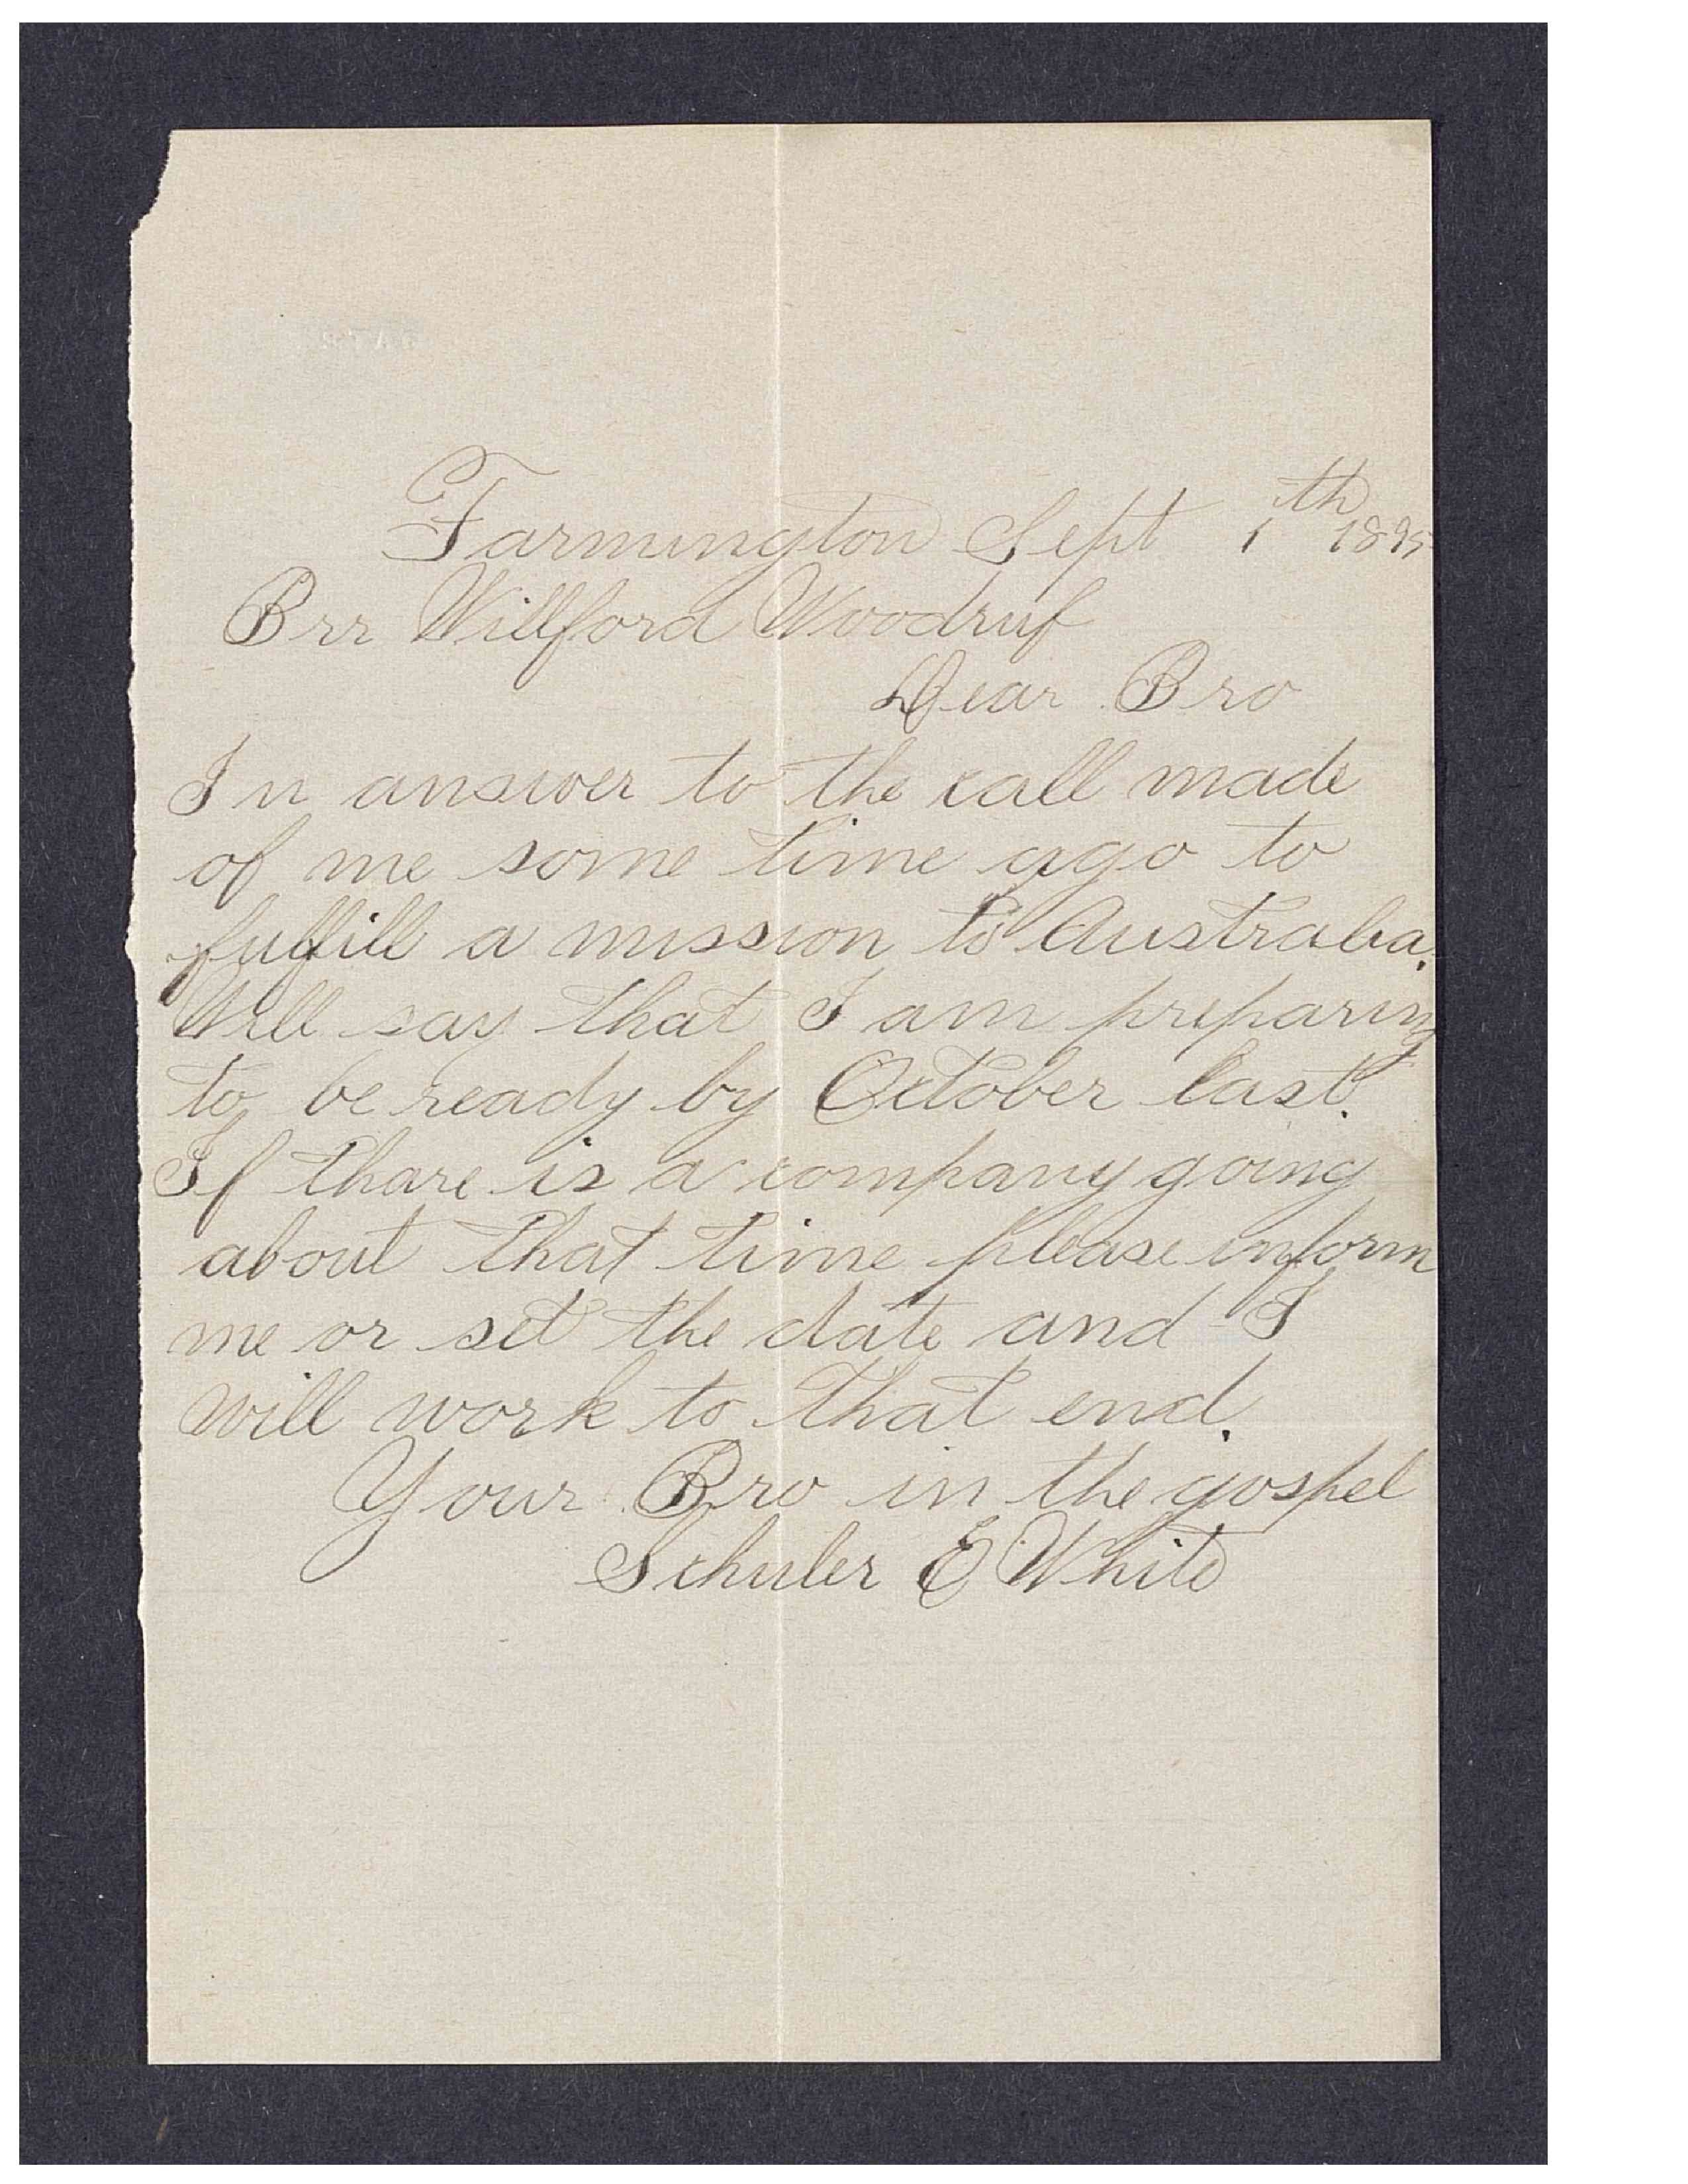 Farmington Sept 1th 1895
Brr Willford Woodruf
Dear Bro
In answer to the call made
of me some time ago to
fulfill a mission to Australia.
Will say that I am preparing
to be ready by October last.
If thare is a company going
about that time please inform
me or set the date and I
will work to that end.
Your Bro in the gospel
Schuler E White